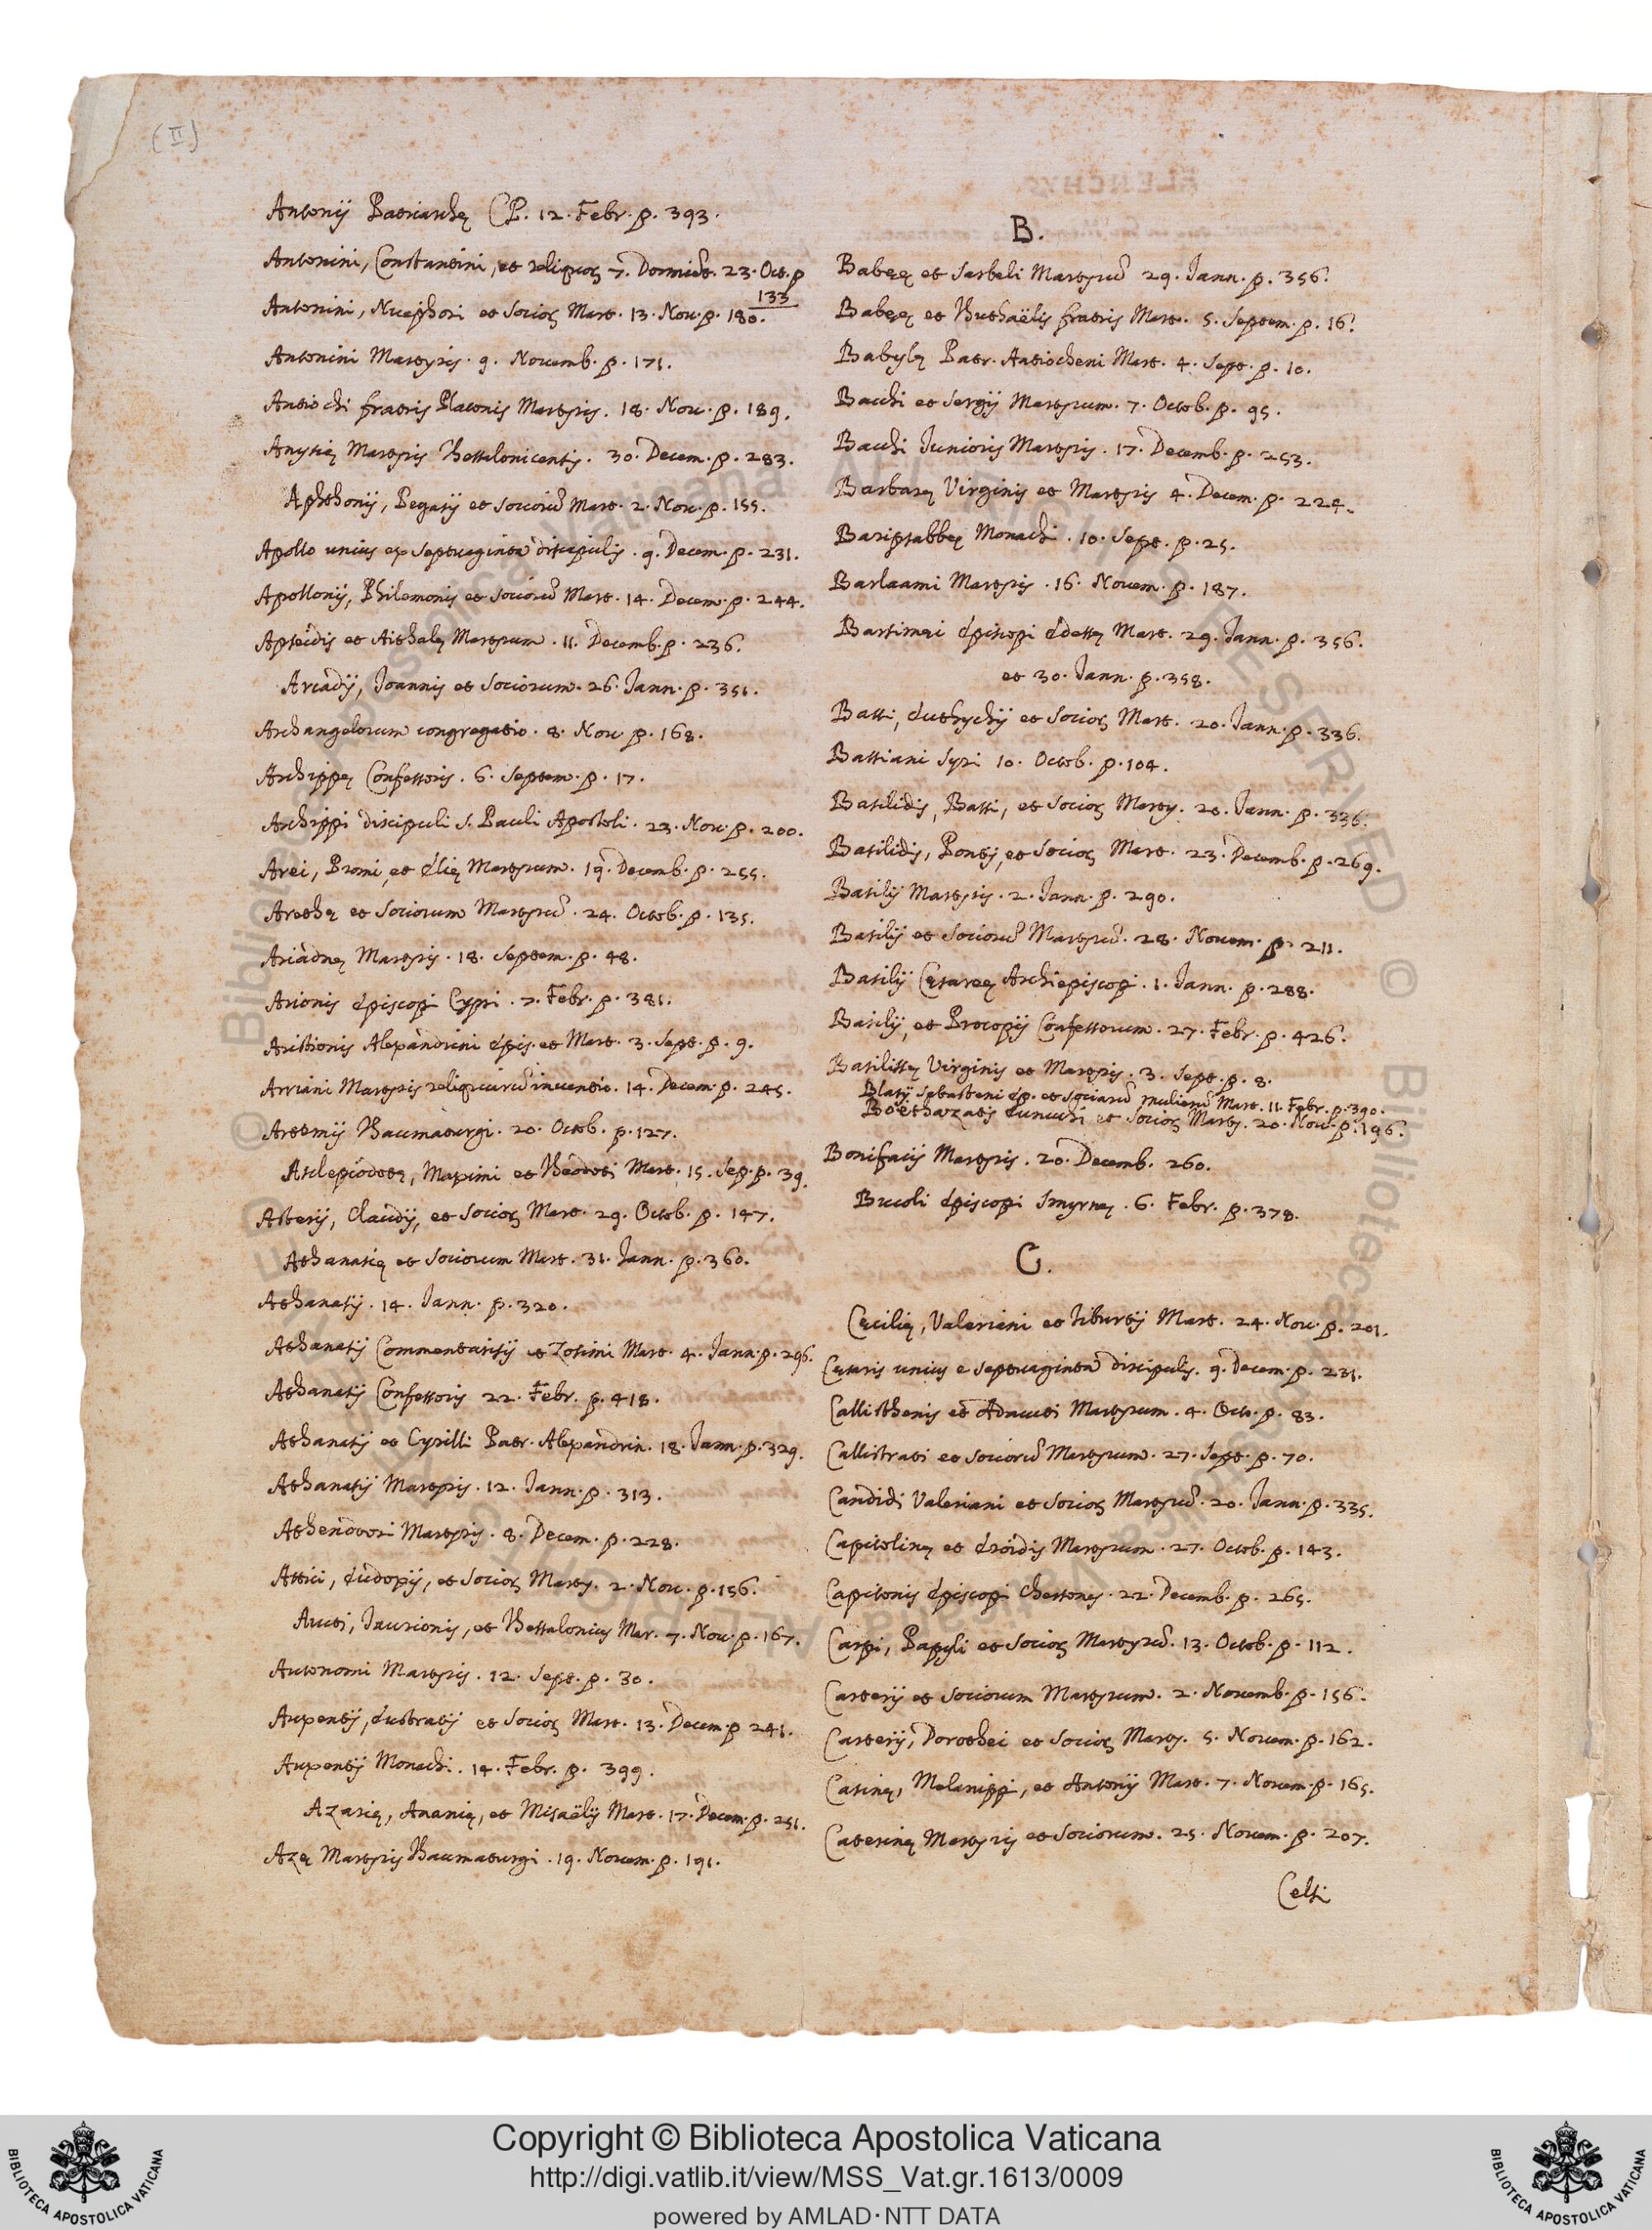 (II)
Antonij Patriarchę CP. 12. Febr. p. 393.
Antonini, Constantini, et reliquoꝝ 7. Dormiẽt. 23. Oct. p
133
Antonini, Nicephori et Socioꝝ Mart. 13. Nov. p. 180.
Antonini Martyris. 9. Novemb. p. 171.
Antiochi fratris Platonis Martyris. 18. Nov. p. 189.
Anysię Martyris Thessalonicensis. 30. Decem. p. 283.
Aphthonij, Pegasij et sociorũ Mart. 2. Nov. p. 155.
Apollo unius ex septuaginta discipulis. 9. Decem. p. 231.
Apollonij, Philemonis et sociorũ Mart. 14. Decem. p. 244.
Apseidis et Aithalę Martyrum. 11. Decemb. p. 236.
Arcadij, Joannis et Sociorum. 26. Jann. p. 351.
Archangelorum congregatio. 8. Nov p. 168.
Archippę Confessoris. 6. Septem. p. 17.
Archippi discipuli S. Pauli Apostoli. 23. Nov. p. 200.
Arei, Promi, et Elię Martyrum. 19. Decemb. p. 255.
Arethę et Sociorum Martyrũ. 24. Octob. p. 135.
Ariadnę Martyris. 18. Septem. p. 48.
Arionis Episcopi Cypri. 7. Febr. p. 381.
Aristionis Alexandrini Epis. et Mart. 3. Sept. p. 9.
Arriani Martyris reliquiarũ inventio. 14. Decem. p. 245.
Artemij Thaumaturgi. 20. Octob. p. 127.
Asclepiodotę, Maximi et Theodoti Mart. 15. Sep. p. 39.
Asterij, Claudij, et Socioꝝ Mart. 29. Octob. p. 147.
Athanasię et Sociorum Mart. 31. Jann. p. 360.
Athanasij. 14. Jann. p. 320.
Athanasij Commentarisij et Zosimi Mart. 4. Jann. p. 296.
Athanasij Confessoris 22. Febr. p. 418.
Athanasij et Cyrilli Patr. Alexandrin. 18. Jann. p. 329.
Athanasij Martyris. 12. Jann. p. 313.
Athenodori Martyris. 8. Decem. p. 228.
Attici, Eudoxij, et Socioꝝ Marty. 2. Nov. p. 156.
Aucti, Taurionis, et Thessalonicę Mar. 7. Nov. p. 167.
Autonomi Martyris. 12. Sept. p. 30.
Auxentij, Eustratij et Socioꝝ Mart. 13. Decem. p 241.
Auxentij Monachi. 14. Febr. p. 399.
Azarię, Ananię, et Misaëlis Mart. 17. Decem. p. 251.
Azę Martyris Thaumaturgi. 19. Novem. p. 191.
B.
Babęę et Sarbeli Martyrũ 29. Jann. p. 356.
Babęę et Thuthaëlis fratris Mart. 5. Septem. p. 16.
Babylę Patr. Antiocheni Mart. 4. Sept. p. 10.
Bacchi et Sergij Martyrum. 7. Octob. p. 95.
Bacchi Junioris Martyris. 17. Decemb. p. 253.
Barbarę Virginis et Martyris 4. Decem. p. 224.
Baripsabbę Monachi. 10. Sept. p. 25.
Barlaami Martyris. 16. Novem. p. 187.
Barsimęi Episcopi Edessę Mart. 29. Jann. p. 356.
et 30. Jann. p. 358.
Bassi, Euthychij et Socioꝝ Mart. 20. Jann. p. 336.
Bassiani Syri 10. Octob. p. 104.
Basilidis, Bassi, et Socioꝝ Marty. 20. Jann. p. 336.
Basilidis, Pontij, et Socioꝝ Mart. 23. Decemb. p. 269.
Basilij Martyris. 2. Jann. p. 290.
Basilij et Sociorũ Martyrũ. 28. Novem. p. 211.
Basilij Cęsareę Archiepiscopi. 1. Jann. p. 288.
Basilij, et Procopij Confessorum. 27. Febr. p. 426.
Basilissę Virginis et Martyris. 3. Sept. p. 8.
Blasij Sebasteni Ep. et sociarũ mulierũ Mart. 11. Febr. p. 390.
Boethazatis Eunuchi et Socioꝝ Marty. 20. Nov. p. 196.
Bonifacij Martyris. 20. Decemb. 260.
Bucoli Episcopi Smyrnę. 6. Febr. p. 378.
C.
Cęcilię, Valeriani et Tiburtij Mart. 24. Nov. p. 201.
Cęsaris unius e septuaginta discipulis. 9. Decem. p. 231.
Callisthenis et Adaucti Martyrum. 4. Octo. p. 83.
Callistrati et sociorũ Martyrum. 27. Sept. p. 70.
Candidi Valeriani et Socioꝝ Martyrũ. 20. Jann. p. 335.
Capitolinę et Eroidis Martyrum. 27. Octob. p. 143.
Capitonis Episcopi Chersonę. 22. Decemb. p. 265.
Carpi, Papyli et Socioꝝ Martyrũ. 13. Octob. p. 112.
Carterij et Sociorum Martyrum. 2. Novemb. p. 156.
Carterij, Dorothei et Socioꝝ Marty. 5. Novem. p. 162.
Casinę, Melanippi, et Antonij Mart. 7. Novem. p. 165.
Caterinę Martyris et Sociorum. 25. Novem. p. 207.
Celsi
Copyright © Biblioteca Apostolica Vaticana
http://digi.vatlib.it/view/MSS_Vat.gr.1613/0009
powered by AMLAD·NTT DATA
BIBLIOTECA APOSTOLICA VATICANA
BIBLIOTECA APOSTOLICA VATICANA